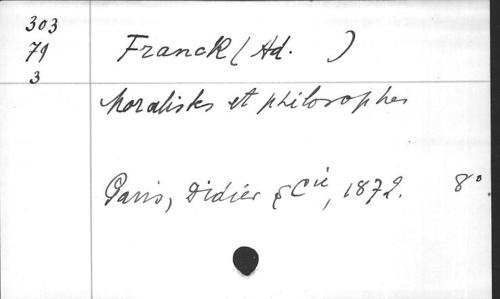 303
79
3
Franck (Ad. )
Moralistes et philosophes
Paris, Didier & Cie, 1872. 8°